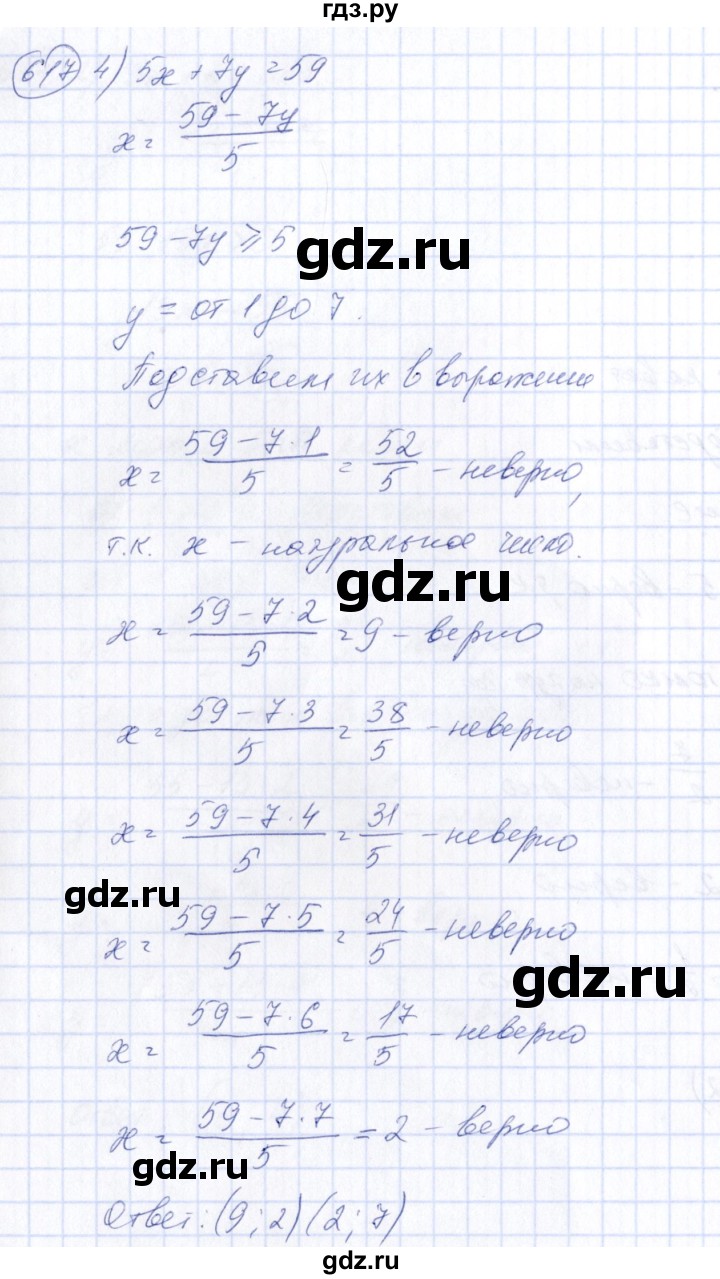 гдз.ру
617 4) 5x + 7y = 59
x = (59 - 7y)/5
59 - 7y ⩾ 5
gdz.ru
y = от 1 до 7.
Подставим их в выражение
x = (59 - 7·1)/5 = 52/5 - неверно,
т.к. x - натуральное число.
gdz.ru
x = (59 - 7·2)/5 = 9 - верно
x = (59 - 7·3)/5 = 38/5 - неверно
x = (59 - 7·4)/5 = 31/5 - неверно
gdz.ru
x = (59 - 7·5)/5 = 24/5 - неверно
gdz.ru
x = (59 - 7·6)/5 = 17/5 - неверно
x = (59 - 7·7)/5 = 2 - верно
gdz.ru
Ответ: (9; 2) (2; 7)
gdz.ru